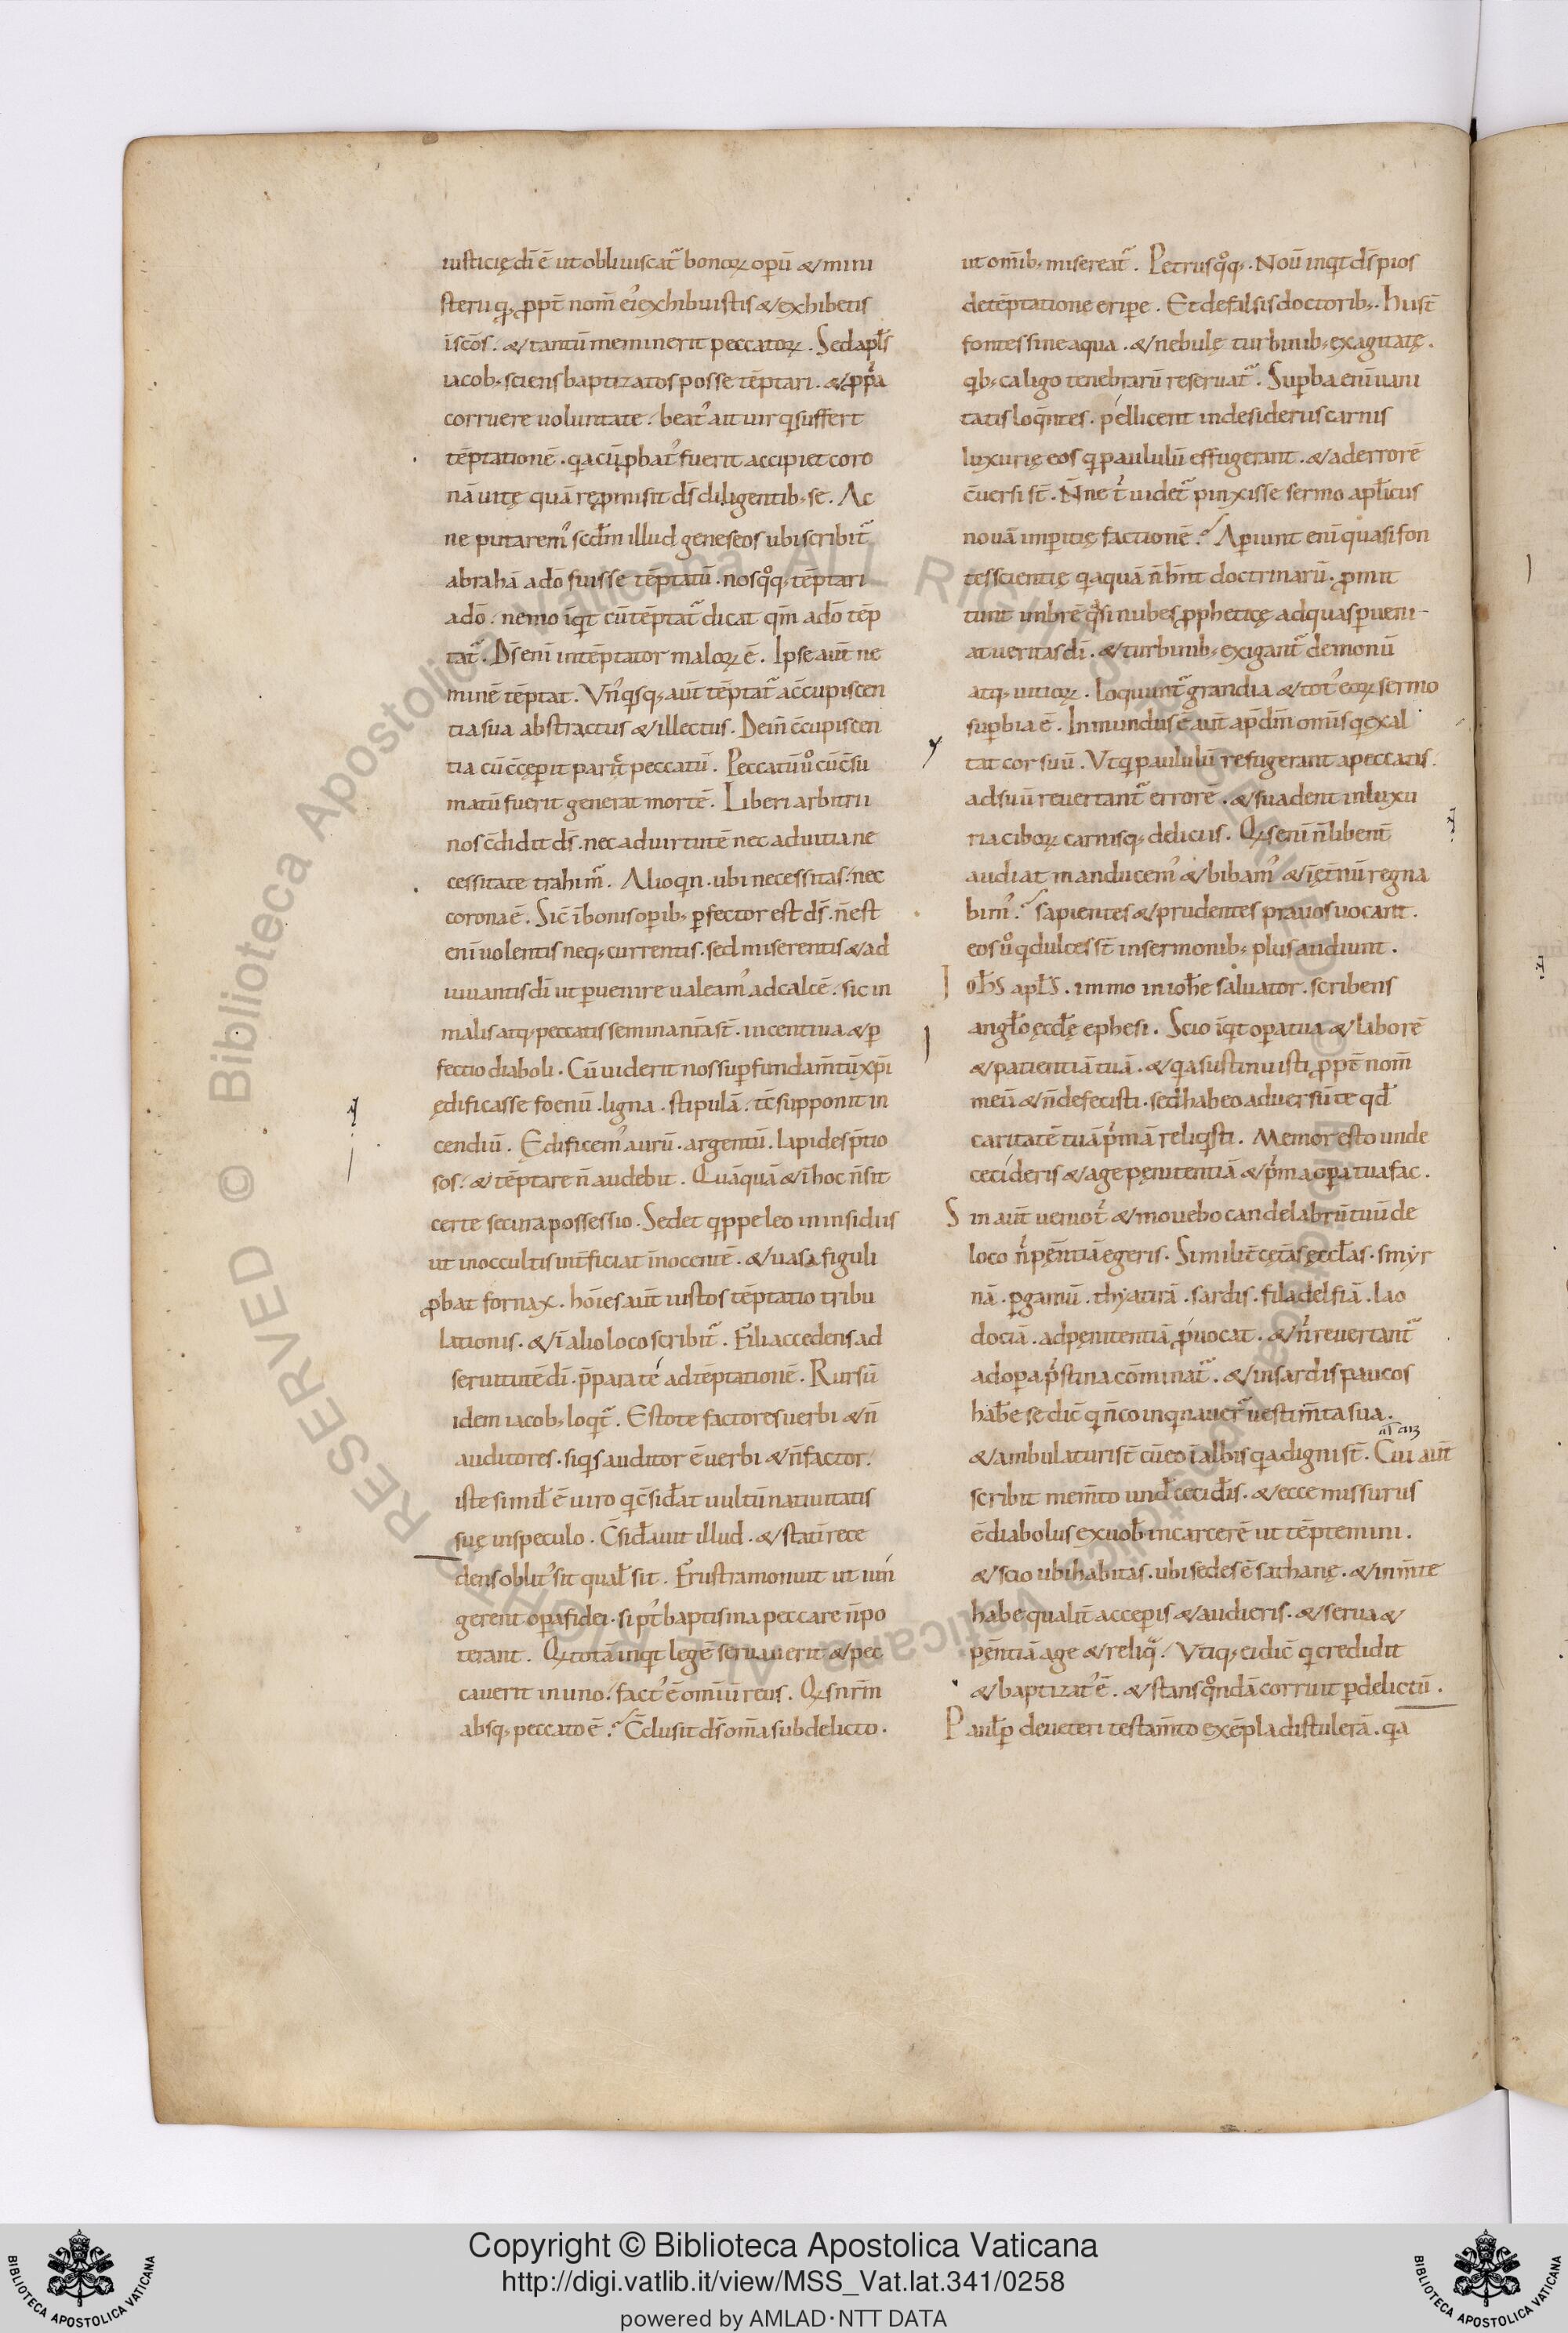 iusticię dī ē ut obliuiscat᷑ bonoꝝ opū & mini
sterii qꝫ ꝓpt̄ nom̄ eiꝰ exhibuistis & exhibetis
ī scōs. & tantū meminerit peccatoꝝ. Sed apl̄s
iacobꝫ sciens baptizatos posse tēptari. & ꝓpͥa
corruere voluntate. beatꝰ ait uir qͥ suffert
tēptationē. qͥa cū ꝓbatꝰ fuerit accipiet coro
nā uitę quā reꝓmisit ds̄ diligentibꝫ se. Ac
ne putaremꝰ scd̄m illud geneseos ubi scribit᷑
abrahā a dō fuisse tēptatū. nos qͦqꝫ tēptari
a dō. nemo īqͥt cū tēptat᷑ dicat qm̄ a dō tēp
tat᷑. Ds̄ enī intēptator maloꝝ ē. Ipse aut̄ ne
minē tēptat. Vnꝰqͥsqꝫ aut̄ tēptat᷑ a c̄cupiscen
tia sua abstractus & illectus. Dein̄ c̄cupiscen
tia cū c̄cęperit parit᷑ peccatū. Peccatū uͦ cū c̄su
matū fuerit generat mortē. Liberi arbitrii
nos c̄didit ds̄. nec ad uirtutē nec ad uitia ne
cessitate trahim᷑. Alioqͥn. ubi necessitas. nec
corona ē. Sic̄ ī bonis opibꝫ ꝑfector est ds̄. n̄ est
enī volentis neqꝫ currentis. sed miserentis & ad
iuuantis dī ut ꝑuenire ualeamꝰ ad calcē. sic in
malis atqꝫ peccatis semina nr̄a st̄. incentiua & ꝑ
fectio diaboli. Cū uiderit nos suꝑ fundam̄tū xp̄i
ędificasse foenū. ligna. stipulā. tc̄ supponit in
cendiū. Edificemꝰ aurū. argentū. lapides p̄tio
sos. & tēptare n̄ audebit. Quāquā & ī hoc n̄ sit
certe secura possessio. Sedet qͥppe leo in insidiis
ut in occultis int̄ficiat īnocentē. & uasa figuli
ꝓbat fornax. hoīes aut̄ iustos tēptatio tribu
lationis. & ī alio loco scribit᷑. Fili accedens ad
seruitutē dī. p̄para te ad tēptationē. Rursū
idem iacobꝫ loqͥt᷑. Estote factores uerbi & n̄
auditores. si qͥs auditor ē uerbi & n̄ factor.
iste simil̄ ē uiro qͥ c̄sid̄at uultū natiuitatis
suę in speculo. C̄sid̄auit illud. & statī rece
dens oblitꝰ sit qual̄ sit. Frustra monuit ut iun
gerent opa fidei. si p̄t baptisma peccare n̄ po
terant. Qͥ totā inqͥt legē seruauerit & pec
cauerit in uno. factꝰ ē omiū reus. Qͥs nr̄m
absqꝫ peccato ē? C̄clusit ds̄ om̄a sub delicto.
ut om̄ibꝫ misereat᷑. Petrus qͦqꝫ. Nou̅ inqͥt ds̄ pios
de tēptatione eripe. Et de falsis doctoribꝫ. hi st̄
fontes sine aqua. & nebulę turbinibꝫ exagitatę.
qͥbꝫ caligo tenebrarū reseruat᷑. Suꝑba enī uani
tatis loq̄ntes. pellicent in desideriis carnis
luxurię eos qͥ paululū effugerant. & ad errorē
c̄uersi st̄. Nn̄e t̓ uidet᷑ pinxisse sermo apl̄icus
nouā imꝑitię factionē? Aꝑiunt enī quasi fon
tes scientię qͥ aquā n̄ hn̄t doctrinarū. ꝓmit
tunt imbrē qͣsi nubes ꝓpheticę ad quas ꝑueni
at ueritas dī. & turbinibꝫ exigant᷑ demonū
atqꝫ uitioꝝ. Loquunt᷑ grandia & totꝰ eoꝝ sermo
suꝑbia ē. Inmundus ē aut̄ ap̄ dm̄ omīs qͥ exal
tat cor suū. Vt qͥ paululū refugerant a peccatis.
ad suū reuertant᷑ errorē. & suadent in luxu
ria ciboꝝ carnisqꝫ deliciis. Qͥs enī n̄ libent̄
audiat manducemꝰ & bibamꝰ & ī ęt̄nū regna
bimꝰ? sapientes & prudentes prauos uocant.
eos uͦ qͥ dulces st̄ in sermonibꝫ plus audiunt.
Ioh̄s apl̄s. immo in ioh̄e saluator. scribens
angl̄o ęccl̄ę ephesi. Scio īqͥt opa tua & laborē
& patientiā tuā. & qͥa sustinuisti ꝓpt̄ nom̄
meū & n̄ defecisti. sed habeo aduersū te qd̄
caritatē tuā pͥmā reliqͥsti. Memor esto unde
cecideris & age pęnitentiā & pͥma opa tua fac.
Sin aut̄ uenio t̓ & mouebo candelabrū tuū de
loco nͥ pęn̄tiā egeris. Similit̄ cęt̄as ęccl̄as. smyr
nā. ꝑgamū. thyatirā. sardis. filadelfiā. lao
dociā. ad pęnitentiā ꝓuocat. & nͥ reuertant᷑
ad opa pͥstina cōminat᷑. & in sardis paucos
hab̄e se dic̄ qͥ n̄ coinqͥnauer̄ uestim̄ta sua.
& ambulaturi st̄ cū eo ī albis qͥa digni st̄. Cui aut̄
scribit mem̄to und̄ cecid̄is. & ecce missurus
ē diabolus ex uob̄ in carcerē ut tēptemini.
& scio ubi habitas. ubi sedes ē sathanę. & in m̄te
habe qualit̄ accepis & audieris. & serua &
pęn̄tiā age & reliqͣ. Vtiqꝫ ei dic̄ qͥ credidit
& baptizatꝰ ē. & stans qͦndā corruit ꝑ delictū.
Paul̄ꝑ de ueteri testam̄to exēpla distulerā. qͥa
Copyright © Biblioteca Apostolica Vaticana
http://digi.vatlib.it/view/MSS_Vat.lat.341/0258
powered by AMLAD·NTT DATA
BIBLIOTECA APOSTOLICA VATICANA
BIBLIOTECA APOSTOLICA VATICANA
© Biblioteca Apostolica Vaticana ALL RIGHTS RESERVED